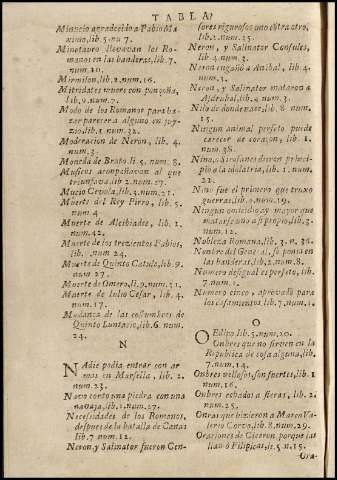 TABLA
Minucio agradecido a Fabio Ma
ximo, lib. 5. nu. 7.
Minotauro llevavan los Ro-
manos en las banderas, lib. 7.
num. 10.
Mirmilon, lib. 2. num. 16.
Mitridates muere con ponçoña,
lib. 9. num. 7.
Modo de los Romanos para ha-
zer parecer a alguno en juy-
zio, lib. 3. num. 32.
Moderacion de Neron, lib. 4.
num. 3.
Moneda de Bruto li. 5. num. 8.
Musicos acompañavan al que
triunfava lib. 2. num. 27.
Mucio Cevola, lib. 3. num. 21.
Muerte del Rey Pirro, lib. 5.
num. 4
Muerte de Alcibiades, lib. 1.
num. 42,
Muerte de los trezientos Fabios,
lib. num 24.
Muerte de Quinto Catulo, lib. 9.
num 27.
Muerte de Omero, li. 9. num. 31.
Muerte de Iulio Cesar, lib. 4.
num. 17.
Mudança de las costumbres de
Quinto Luntacio, lib. 6. num.
24.
N
NAdie podia entrar con ar
mas en Marsella, lib. 2.
num. 23.
Navo corto una piedra con una
navaja, lib. 1. num. 27.
Necessidades de los Romanos,
despues de la batalla de Canas
lib. 7 num. 12.
Neron, y Salinator fueron Cen-
sores rigurosos uno contra otro,
lib. 2. num. 25.
Neron, y Salinator Consules,
lib. 4 num. 3.
Neron engañó a Anibal, lib. 4.
num. 3.
Neron, y Salinator mataron a
Asdrubal, lib. 4 num. 3.
Nilo de donde nace, lib. 8. num.
15.
Ningun animal perfeto puede
carecer de coraçon, lib. 1.
num. 38.
Nino, o Sirofanes dieron princi-
pio a la idolatria, lib. 1. num.
22.
Nino fue el primero que truxo
guerras, lib. 9. num. 19.
Ningun omicidio ay mayor que
matarse uno a si propio, lib. 3.
num. 12.
Nobleza Romana, lib. 3. n. 36.
Nombre del General, se ponia en
las banderas, lib. 2. num. 8.
Numero desigual es perfeto, lib.
7. num. 1.
Numero cinco, aprovado para
los casamientos, lib. 7. num. 1.
O
OEdipo lib. 5. num. 20.
Onbres que no sirven en la
Republica de cosa alguna, lib.
7. num. 14.
Onbres vellosos, son fuertes, lib. 1
num. 16.
Onbres echados a fieras, lib. 2.
num. 25.
Onras que hizieron a Marco Va-
lerio Corvo, lib. 8. num. 29.
Oraciones de Ciceron porque las
llamó Filipicas, li. 5. n. 15.
Ora-